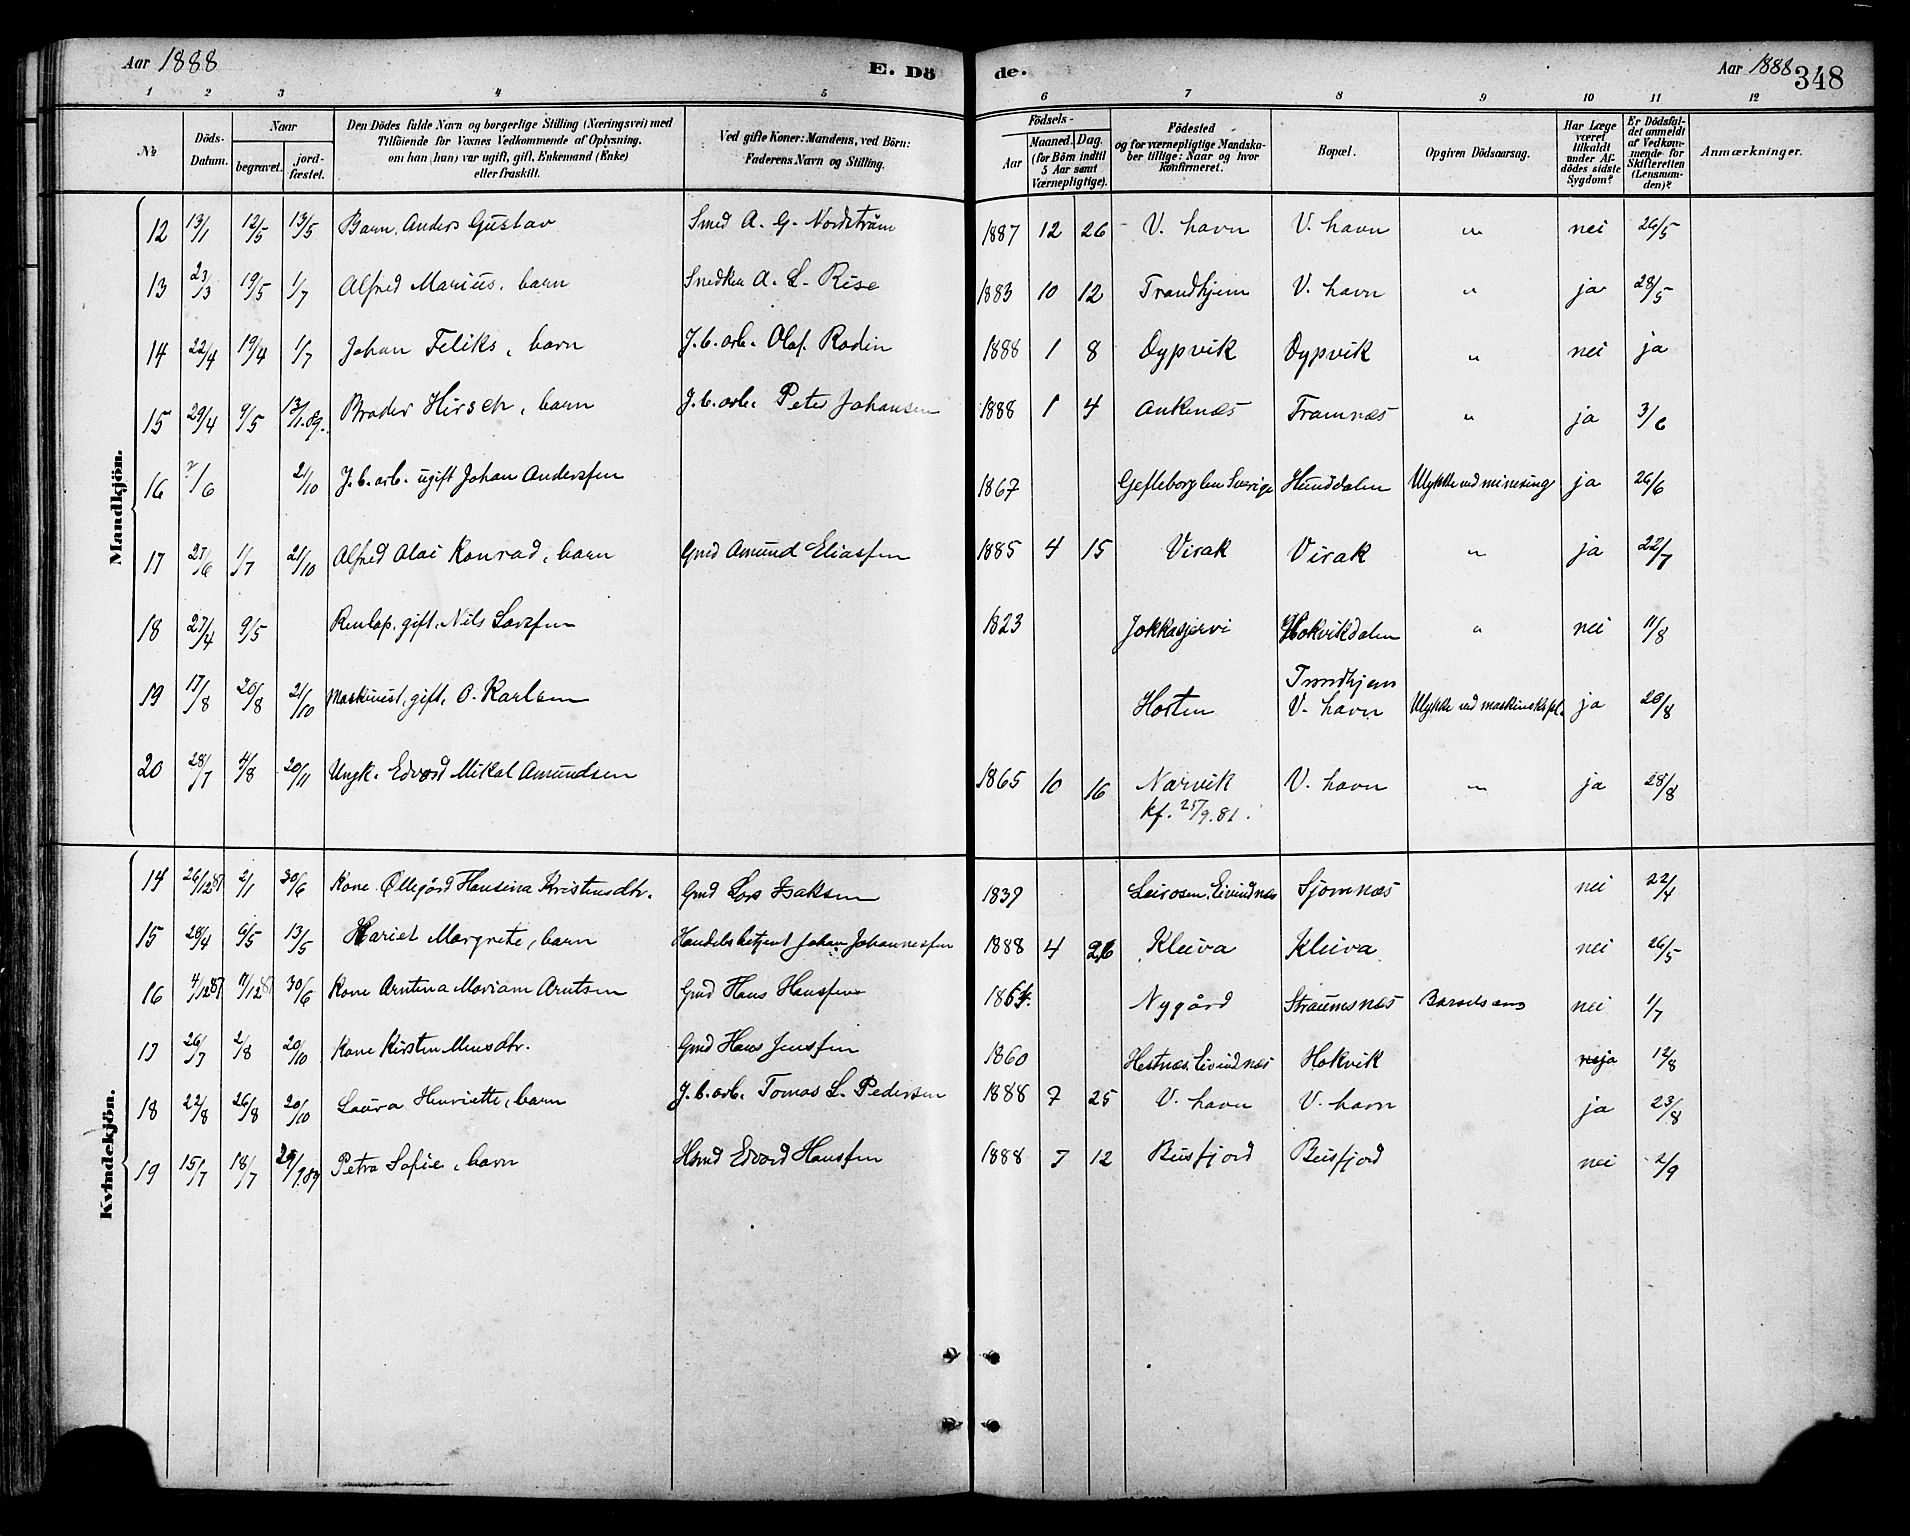 Aar 1888 E. Dö de. Aar 1888 348
1 2 3 4 5 6 7 8 9 10 11 12
№ Döds-Datum. Naar begravet. jord-fæstet. Den Dödes fulde Navn og borgerlige Stilling (Næringsvei) med Tilföiende for Voxnes Vedkommende af Oplysning, om han (hun) var ugift, gift, Enkemand (Enke) eller fraskilt. Ved gifte Koner: Mandens, ved Börn: Faderens Navn og Stilling. Födsels- Aar Maaned. Dag. (for Börn indtil 5 Aar samt Værnepligtige). Födested og for værnepligtige Mandska-ber tillige: Naar og hvor konfirmeret. Bopæl. Opgiven Dödsaarsag. Har Læge været tilkaldt under Af-dödes sidste Sygdom? Er Dödsfal-det anmeldt af Vedkom-mende for Skifteretten (Lensman-den)? Anmærkninger.
Mandkjön.
12 13/1 12/5 13/5 Barn. Anders Gustav Smed A. G. Nordström 1887 12 26 V. havn V. havn " nei 26/5
13 23/3 19/5 1/7 Alfred Marius, barn Snedker A. L. Rise 1883 10 12 Trondhjem V. havn " ja 28/5
14 22/4 19/4 1/7 Johan Feliks, barn J.b.arb. Olaf Rodin 1888 1 8 Dypvik Dypvik " nei ja
15 29/4 9/5 13/1.89. Broder Hirsch, barn J.b.arb. Peter Johansen 1888 1 4 Ankenæs Framnæs " ja 3/6
16 2/6 21/10 J.b.arb. ugift Johan Anderssen 1867 Gefleborg len Sverige Hunddalen Ulykke ved minering ja 26/6
17 27/6 1/7 21/10 Alfred Alai Konrad, barn Gmd Amund Eliassen 1885 4 15 Virak Virak " ja 22/7
18 27/4 9/5 Renlap. gift. Nils Larssen 1823 Jukkasjervi Hokvikdalen " nei 11/8
19 17/8 20/8 21/10 Maskinist, gift, O. Karlsen Horten Trondhjem
V. havn Ulykke ved maskineksspl. ja 20/8
20 28/7 4/8 20/11 Ungk. Edvard Mikal Amundsen 1865 10 16 Narvik V. havn " ja 28/8
kf. 25/9.81.
Kvindekjön.
14 26/12 87 2/1 30/6 Kone Øllegård Hansina Kristensdtr. Gmd Lars Isaksen 1839 Leirosen, Eivindnæs Sjomnæs nei 22/4
15 28/4 6/5 13/5 Hariet Margrete, barn Handelsbetjent Johan Johannessen 1888 4 26 Kleiva Kleiva nei 26/5
16 4/12 87 11/12 87 30/6 Kone Arntina Mariam Arntsen Gmd Hans Hanssen 1864. Nygård Straumsnæs Barselseng nei 1/7
17 26/7 2/8 20/10 Kone Kirsten Monsdtr. Gmd Hans Jenssen 1860 Hestnæs, Eivindnæs Hokvik ja 12/8
18 22/8 26/8 20/10 Laura Henriette, barn J.b.arb. Tomas L. Pedersen 1888 7 25 V. havn V. havn ja 23/8
19 15/7 18/7 29/9.89 Petra Sofie, barn Hmd Edvard Hanssen 1888 7 12 Beisfjord Beisfjord nei 2/9